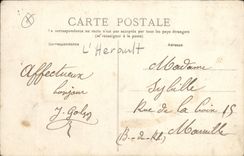 CARTE POSTALE
La correspondance au recto n'est pas acceptée par tous les pays étrangers
(Se renseigner à la poste)
Correspondance
Adresse
L'Herault
Affectueux
bonjour
J. Galy
Madame
Sybille
Rue de la Croix 15
(B-d-Rh) Marseille